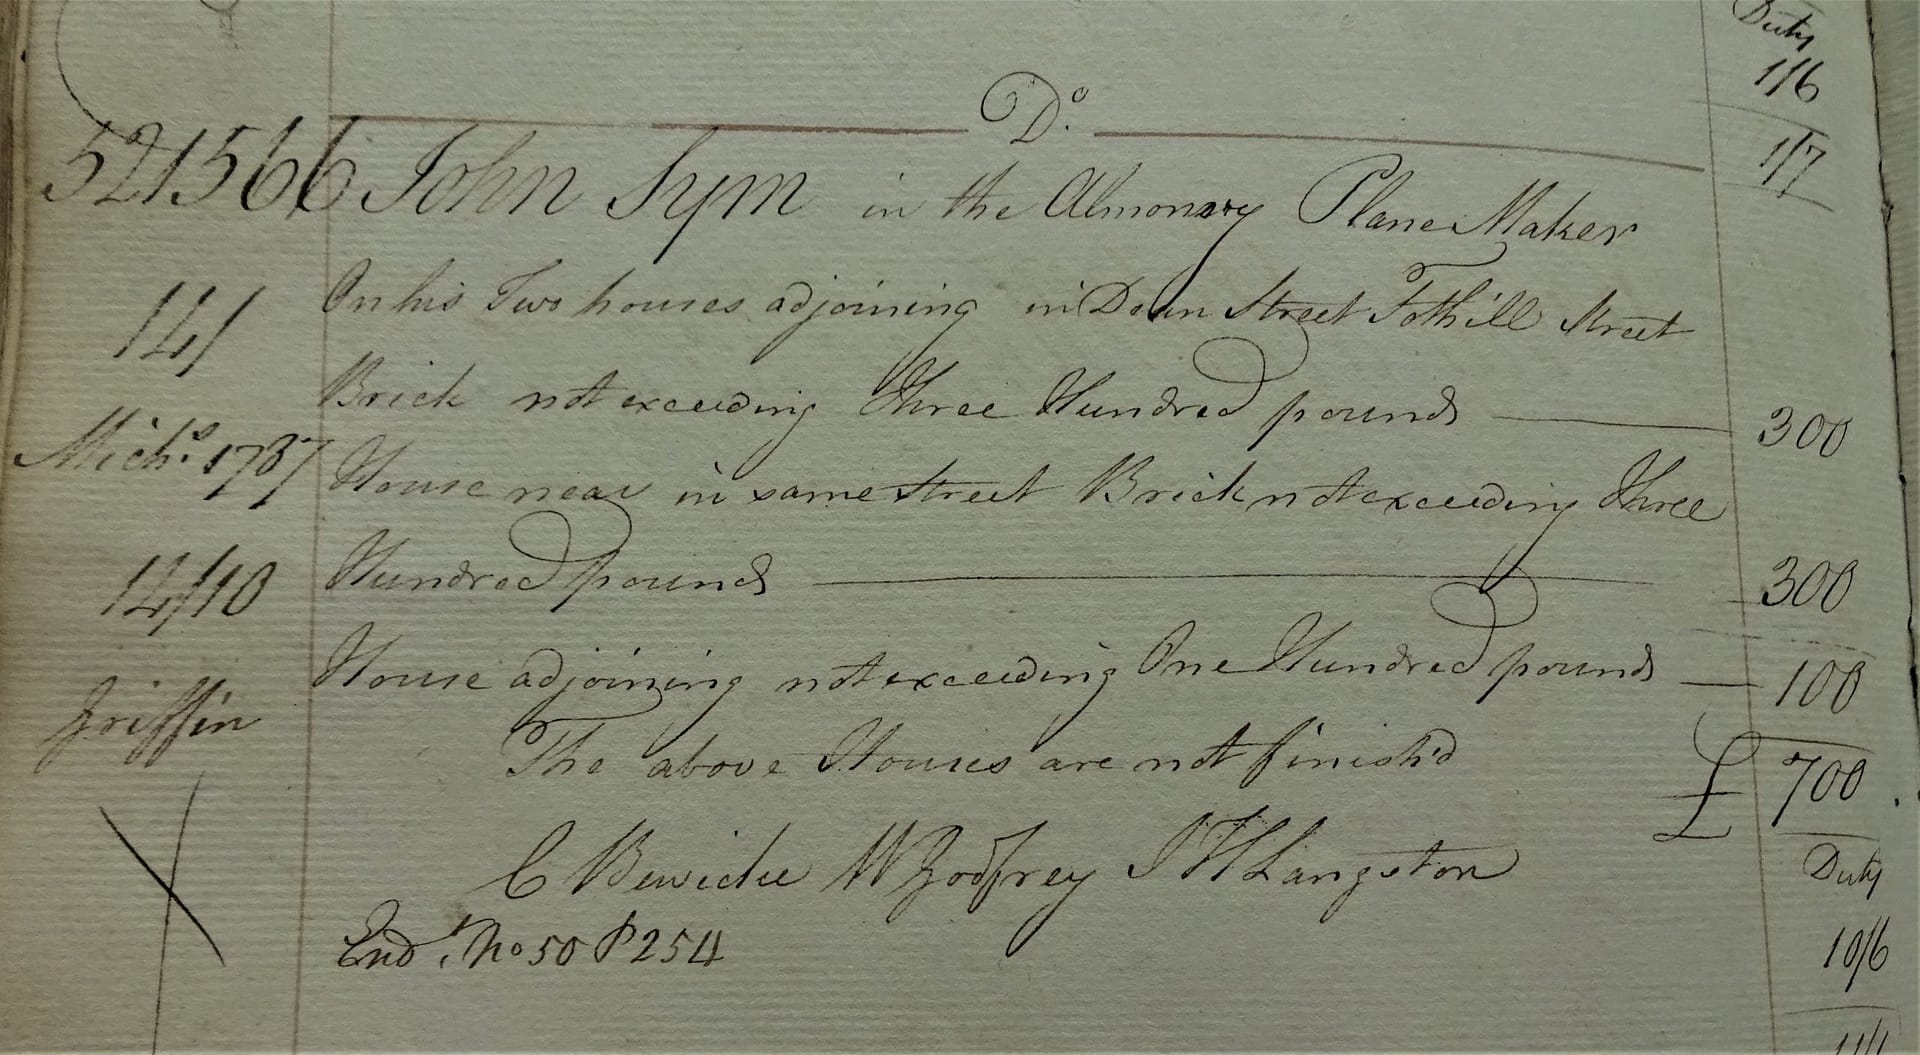 Duty
1/6
D.º
1/7
521566 John Sym in the Almonry Plane Maker
14/ On his Two houses adjoining in Dean Street Tothill Street
Brick not exceeding Three Hundred pounds 300
Mich.s 1787 House near in same Street Brick not exceeding Three
14/10 Hundred pounds 300
House adjoining not exceeding One Hundred pounds 100
Griffin
The above Houses are not finish'd £ 700
C Bewicke W Godfrey J H Langston Duty
End.t No 50 P 254 10/6